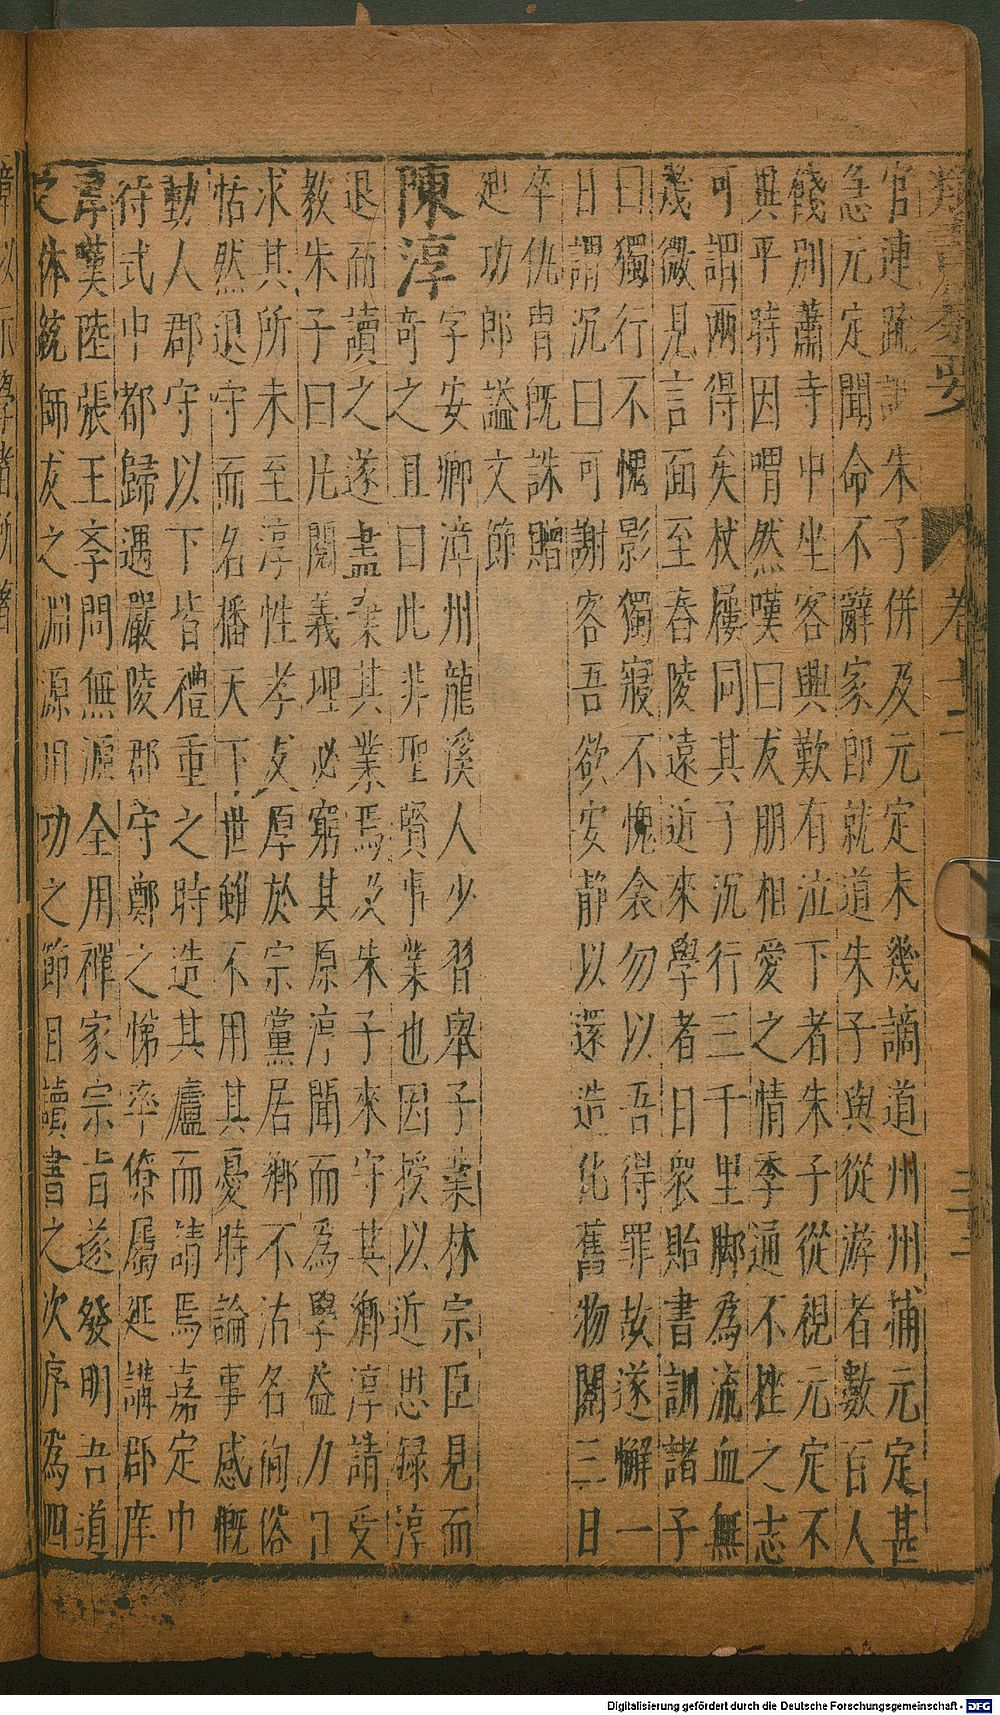 官連疏詆朱子併及元定未幾謫道州州捕元定甚
急元定聞命不辭家即就道朱子與從游者數百人
餞別蕭寺中坐客興歎有泣下者朱子從視元定不
異平時因喟然嘆曰友朋相愛之情季通不挫之志
可謂兩得矣杖屨同其子沉行三千里脚為流血無
幾微見言面至舂陵遠近來學者日衆貽書訓諸子
曰獨行不愧影獨寢不愧衾勿以吾得罪故遂懈一
日謂沉曰可謝客吾欲安静以還造化舊物閱三日
卒侂胄既誅贈
迪功郎謚文節
陳淳 字安卿漳州龍溪人少習舉子業林宗臣見而
奇之且曰此非聖賢事業也因授以近思録淳
退而讀之遂盡棄其業焉及朱子來守其鄉淳請受
教朱子曰凡閱義理必窮其原淳聞而為學益力日
求其所未至淳性孝友厚於宗黨居鄉不沽名徇俗
恬然退守而名播天下世雖不用其憂時論事感慨
動人郡守以下皆禮重之時造其廬而請焉嘉定中
待式中都歸遇嚴陵郡守鄭之悌率僚屬延講郡庠
淳嘆陸張王孝問無源全用禪家宗旨遂發明吾道
之体統師友之淵源用功之節目讀書之次序為四
章以示學者所著
卷十二
二十三
Digitalisierung gefördert durch die Deutsche Forschungsgemeinschaft - DFG